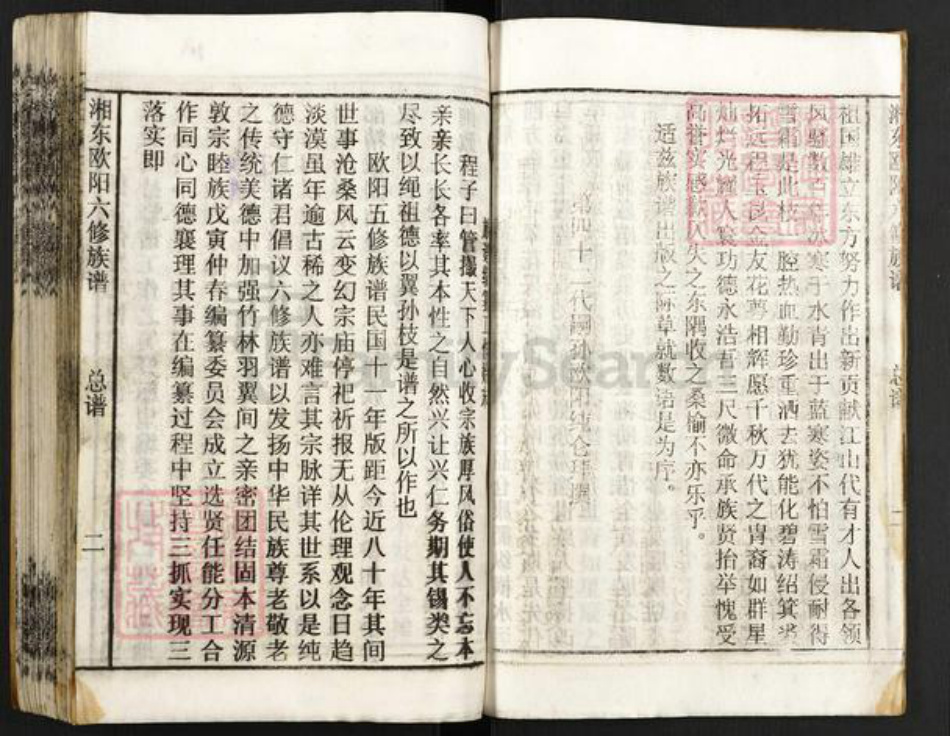 祖国雄立东方努力作出新贡献江山代有才人出各领
风骚数百年冰寒于水青出于蓝寒姿不怕雪霜侵耐得
雪霜是此枝一腔热血勤珍重洒去犹能化碧涛绍箕裘
拓远程玉昆金友花萼相辉愿千秋万代之胄裔如群星
灿烂光耀人寰功德永浩吾三尺微命承族贤抬举愧受
高誉实感歉人失之东隅收之桑榆不亦乐乎。
适兹族谱出版之际草就数语是为序。
第四十二代嗣孙欧阳纯仑珥撰
程子曰管摄天下人心收宗族厚风俗使人不忘本
亲亲长长各率其本性之自然兴让兴仁务期其锡类之
尽致以绳祖德以翼孙枝是谱之所以作也
欧阳五修族谱民国十一年版距今近八十年其间
世事沧桑风云变幻宗庙停祀祈报无从伦理观念日趋
淡漠虽年逾古稀之人亦难言其宗脉详其世系以是纯
德守仁诸君倡议六修族谱以发扬中华民族尊老敬老
之传统美德中加强竹林羽翼间之亲密团结固本清源
敦宗睦族戊寅仲春编纂委员会成立选贤任能分工合
作同心同德襄理其事在编纂过程中坚持三抓实现三
落实即
湘东欧阳六修族谱
总谱
二